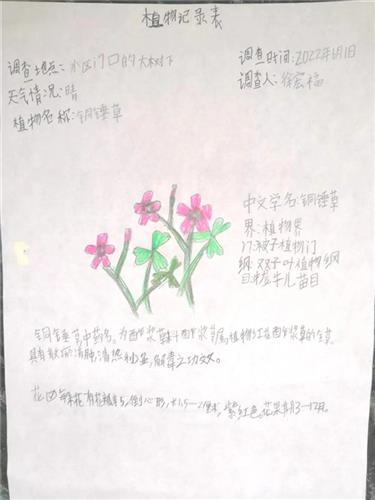 植物记录表
调查地点:小区门口的大树下
调查时间:2022年6月1日
天气情况:晴
调查人:徐宏福
植物名称:铜锤草
中文学名:铜锤草
界:植物界
门:被子植物门
纲:双子叶植物纲
目:牻牛儿苗目
铜锤草,中药名。为酢浆草科酢浆草属植物红花酢浆草的全草。
具有散瘀消肿,清热利湿,解毒之功效。
花瓣5,倒心形,长1.5—2厘米,紫红色。花果期3—12月。